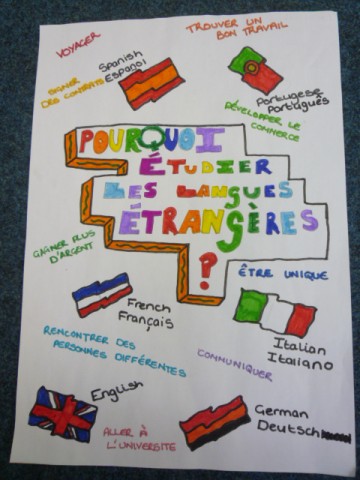 VOYAGER
TROUVER UN
BON TRAVAIL
Spanish
Español
SIGNER
DES CONTRATS
Portugese
Português
DÉVELOPPER LE
COMMERCE
POURQUOI
ÉTUDIER
LES LANGUES
ÉTRANGÈRES
?
GAGNER PLUS
D'ARGENT
ÊTRE UNIQUE
French
Français
Italian
Italiano
RENCONTRER DES
PERSONNES DIFFÉRENTES
COMMUNIQUER
English
German
Deutsch
ALLER À
L'UNIVERSITE